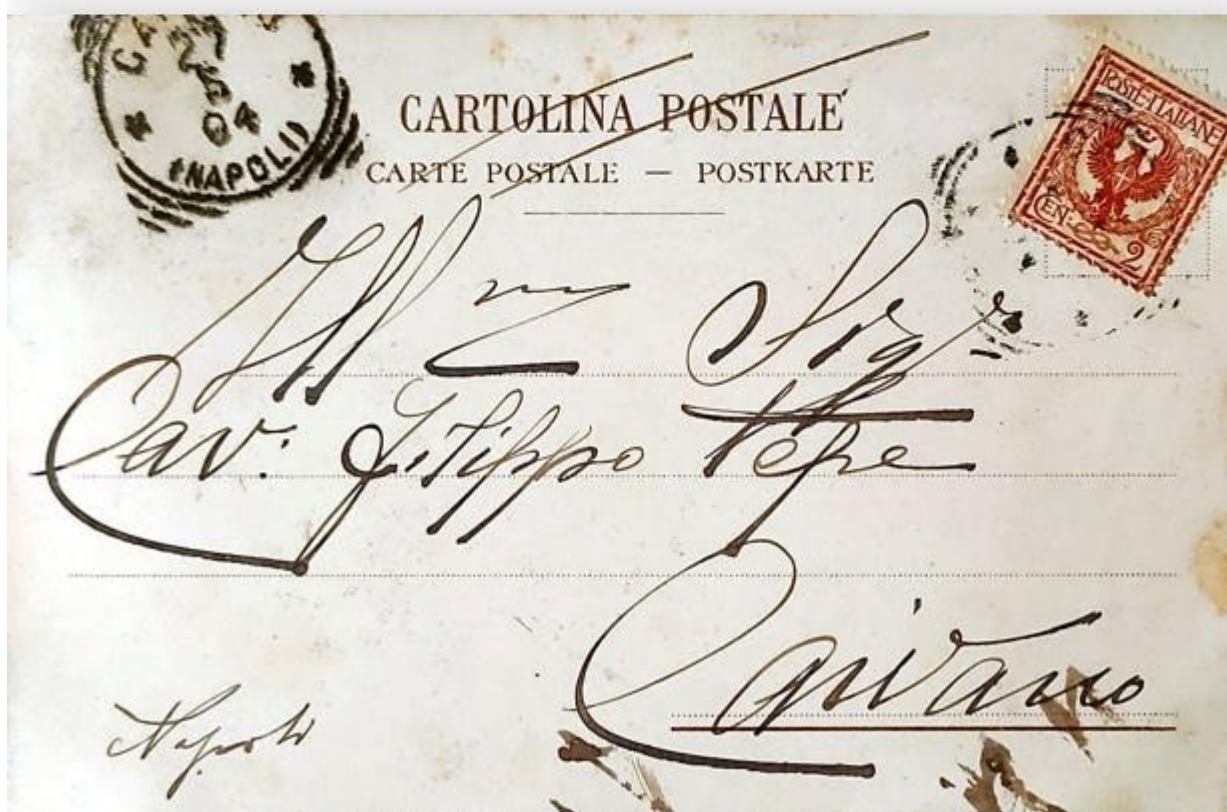 CARTOLINA POSTALE
CARTE POSTALE — POSTKARTE
(NAPOLI)
04
POSTE·ITALIANE
CEN. 2
Ill mo Sigr
Cav. Filippo Pepe
Caivano
Napoli